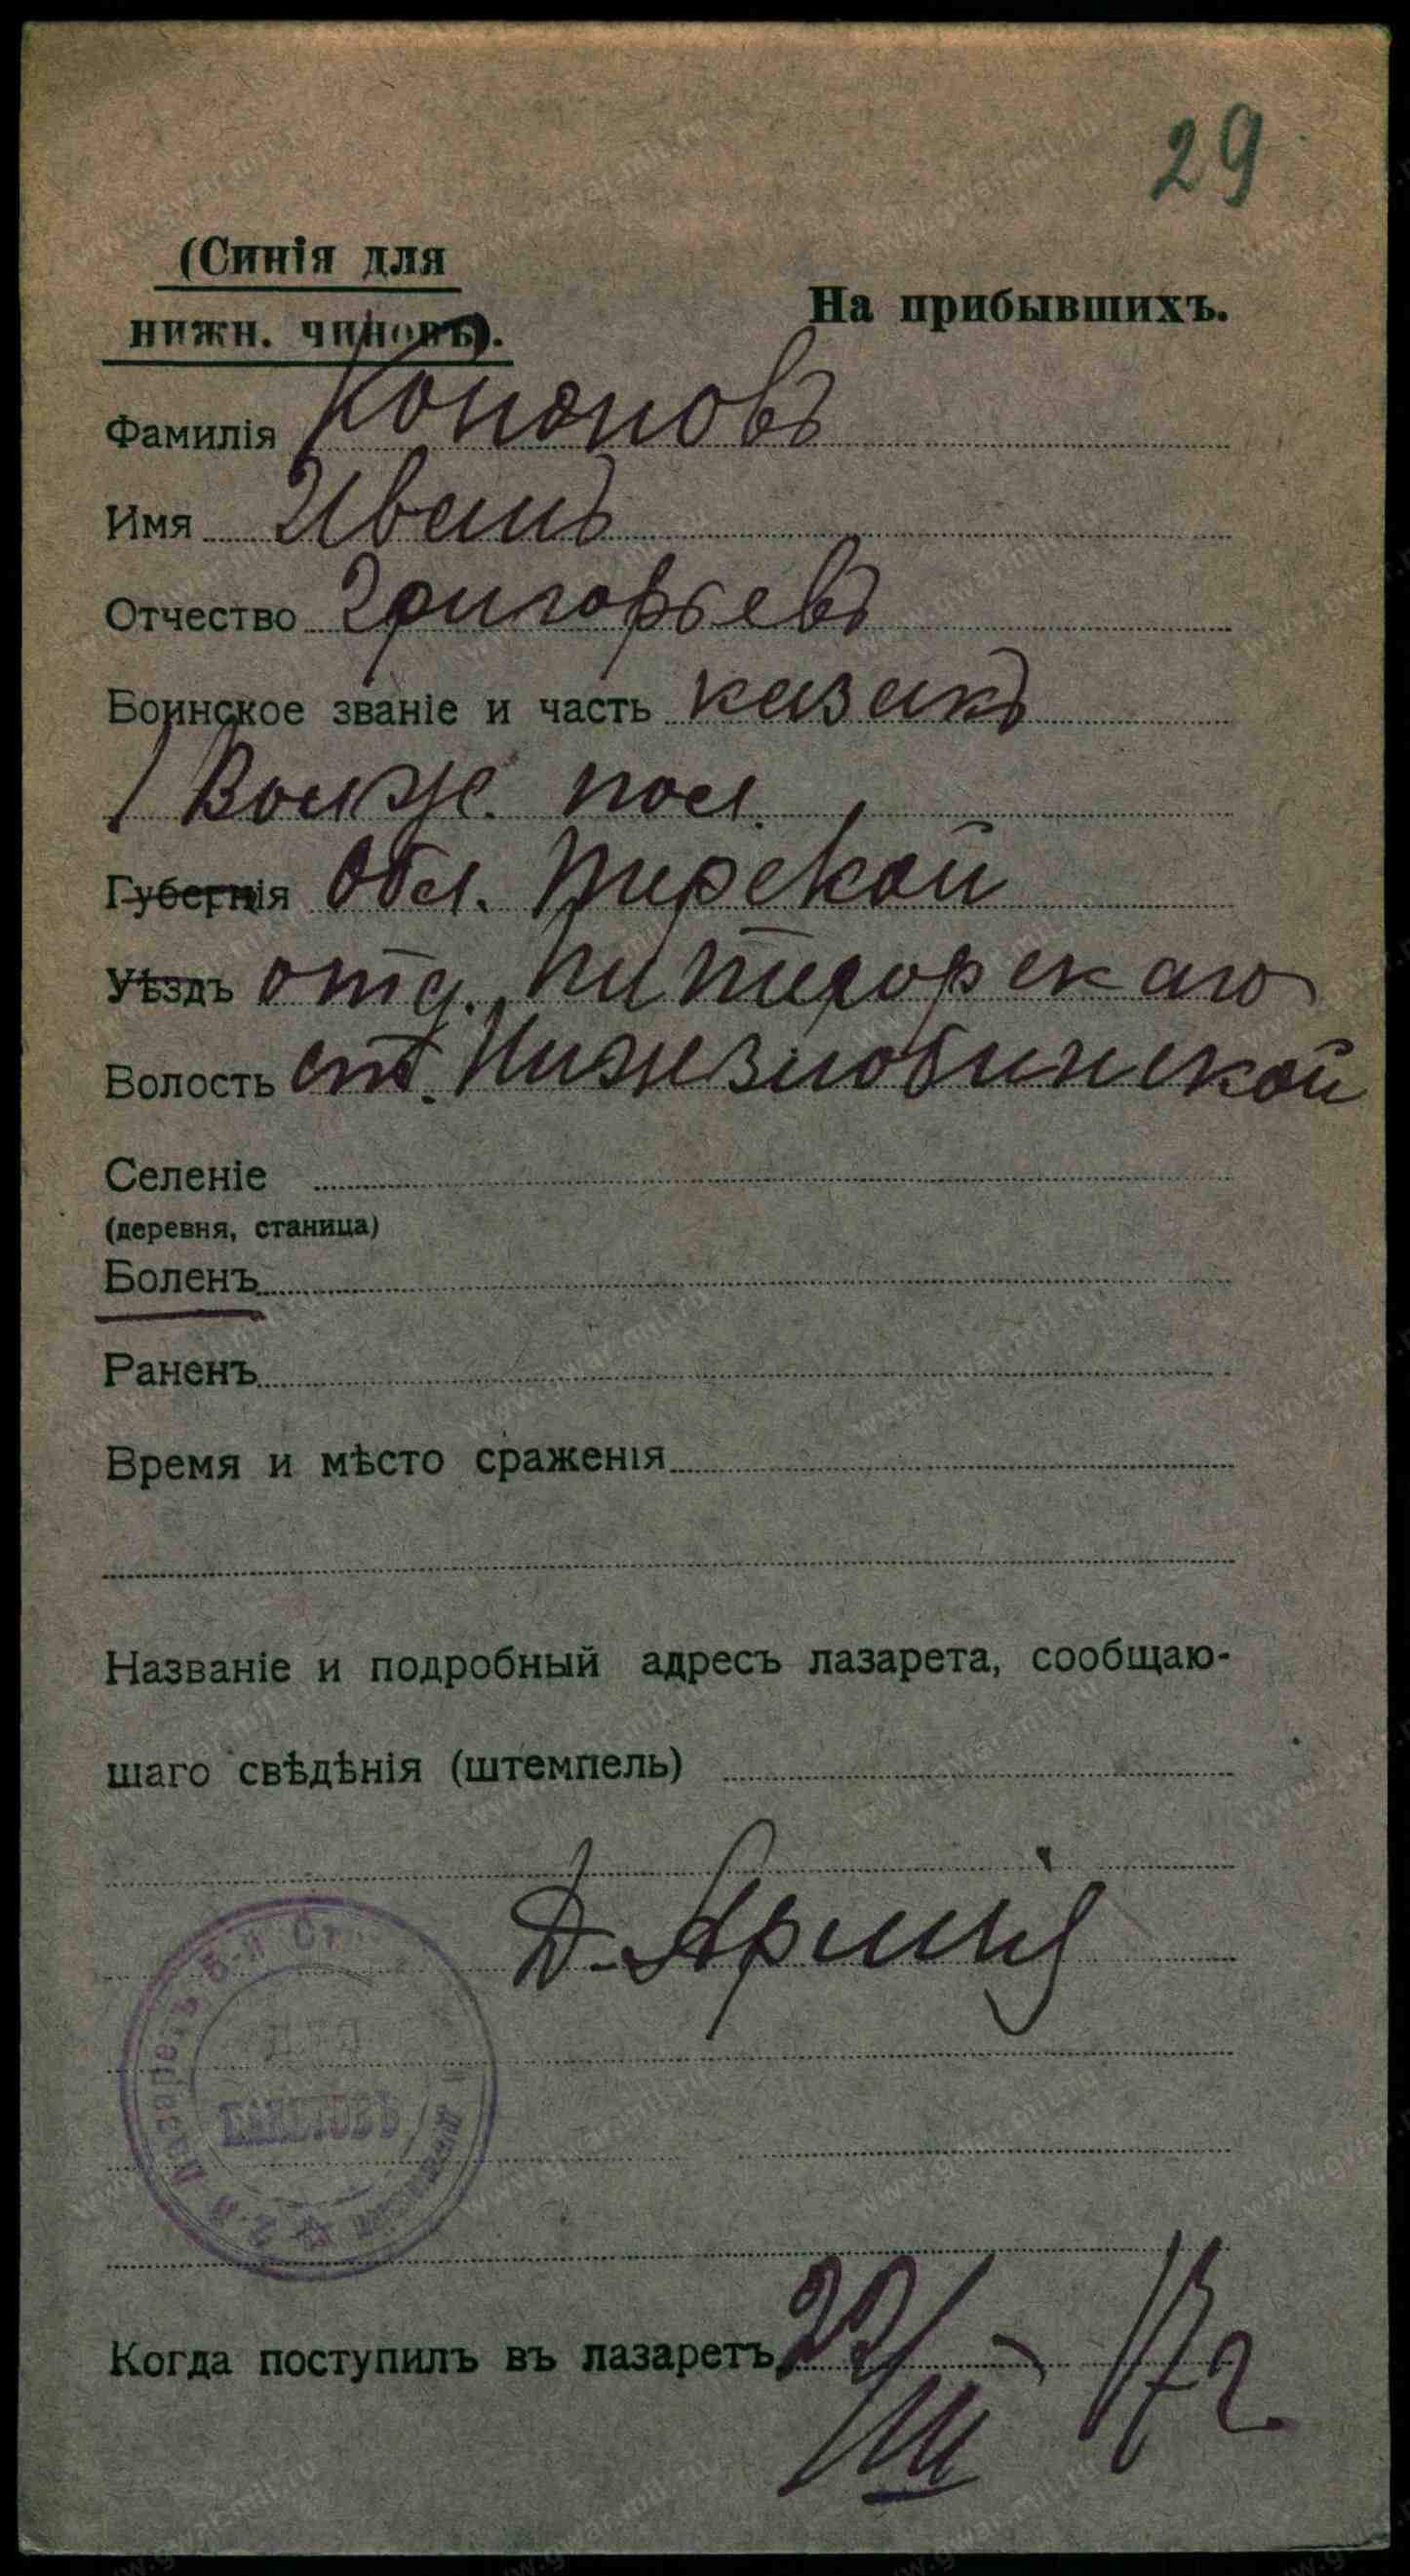 29
(Синія для
нижн. чиновъ).
На прибывшихъ.
Фамилія Кононовъ
Имя Иванъ
Отчество Григорьевъ
Воинское званіе и часть казакъ
1 Волжс. пол.
Губернія Обл. Терской
Уѣздъ отд. Пятигорскаго
Волость ст. Нижезлобинской
Селеніе
(деревня, станица)
Боленъ
Раненъ
Время и мѣсто сраженія
Названіе и подробный адресъ лазарета, сообщаю-
шаго свѣдѣнія (штемпель)
Д. Армія
Когда поступилъ въ лазаретъ 22/III - 17 г.